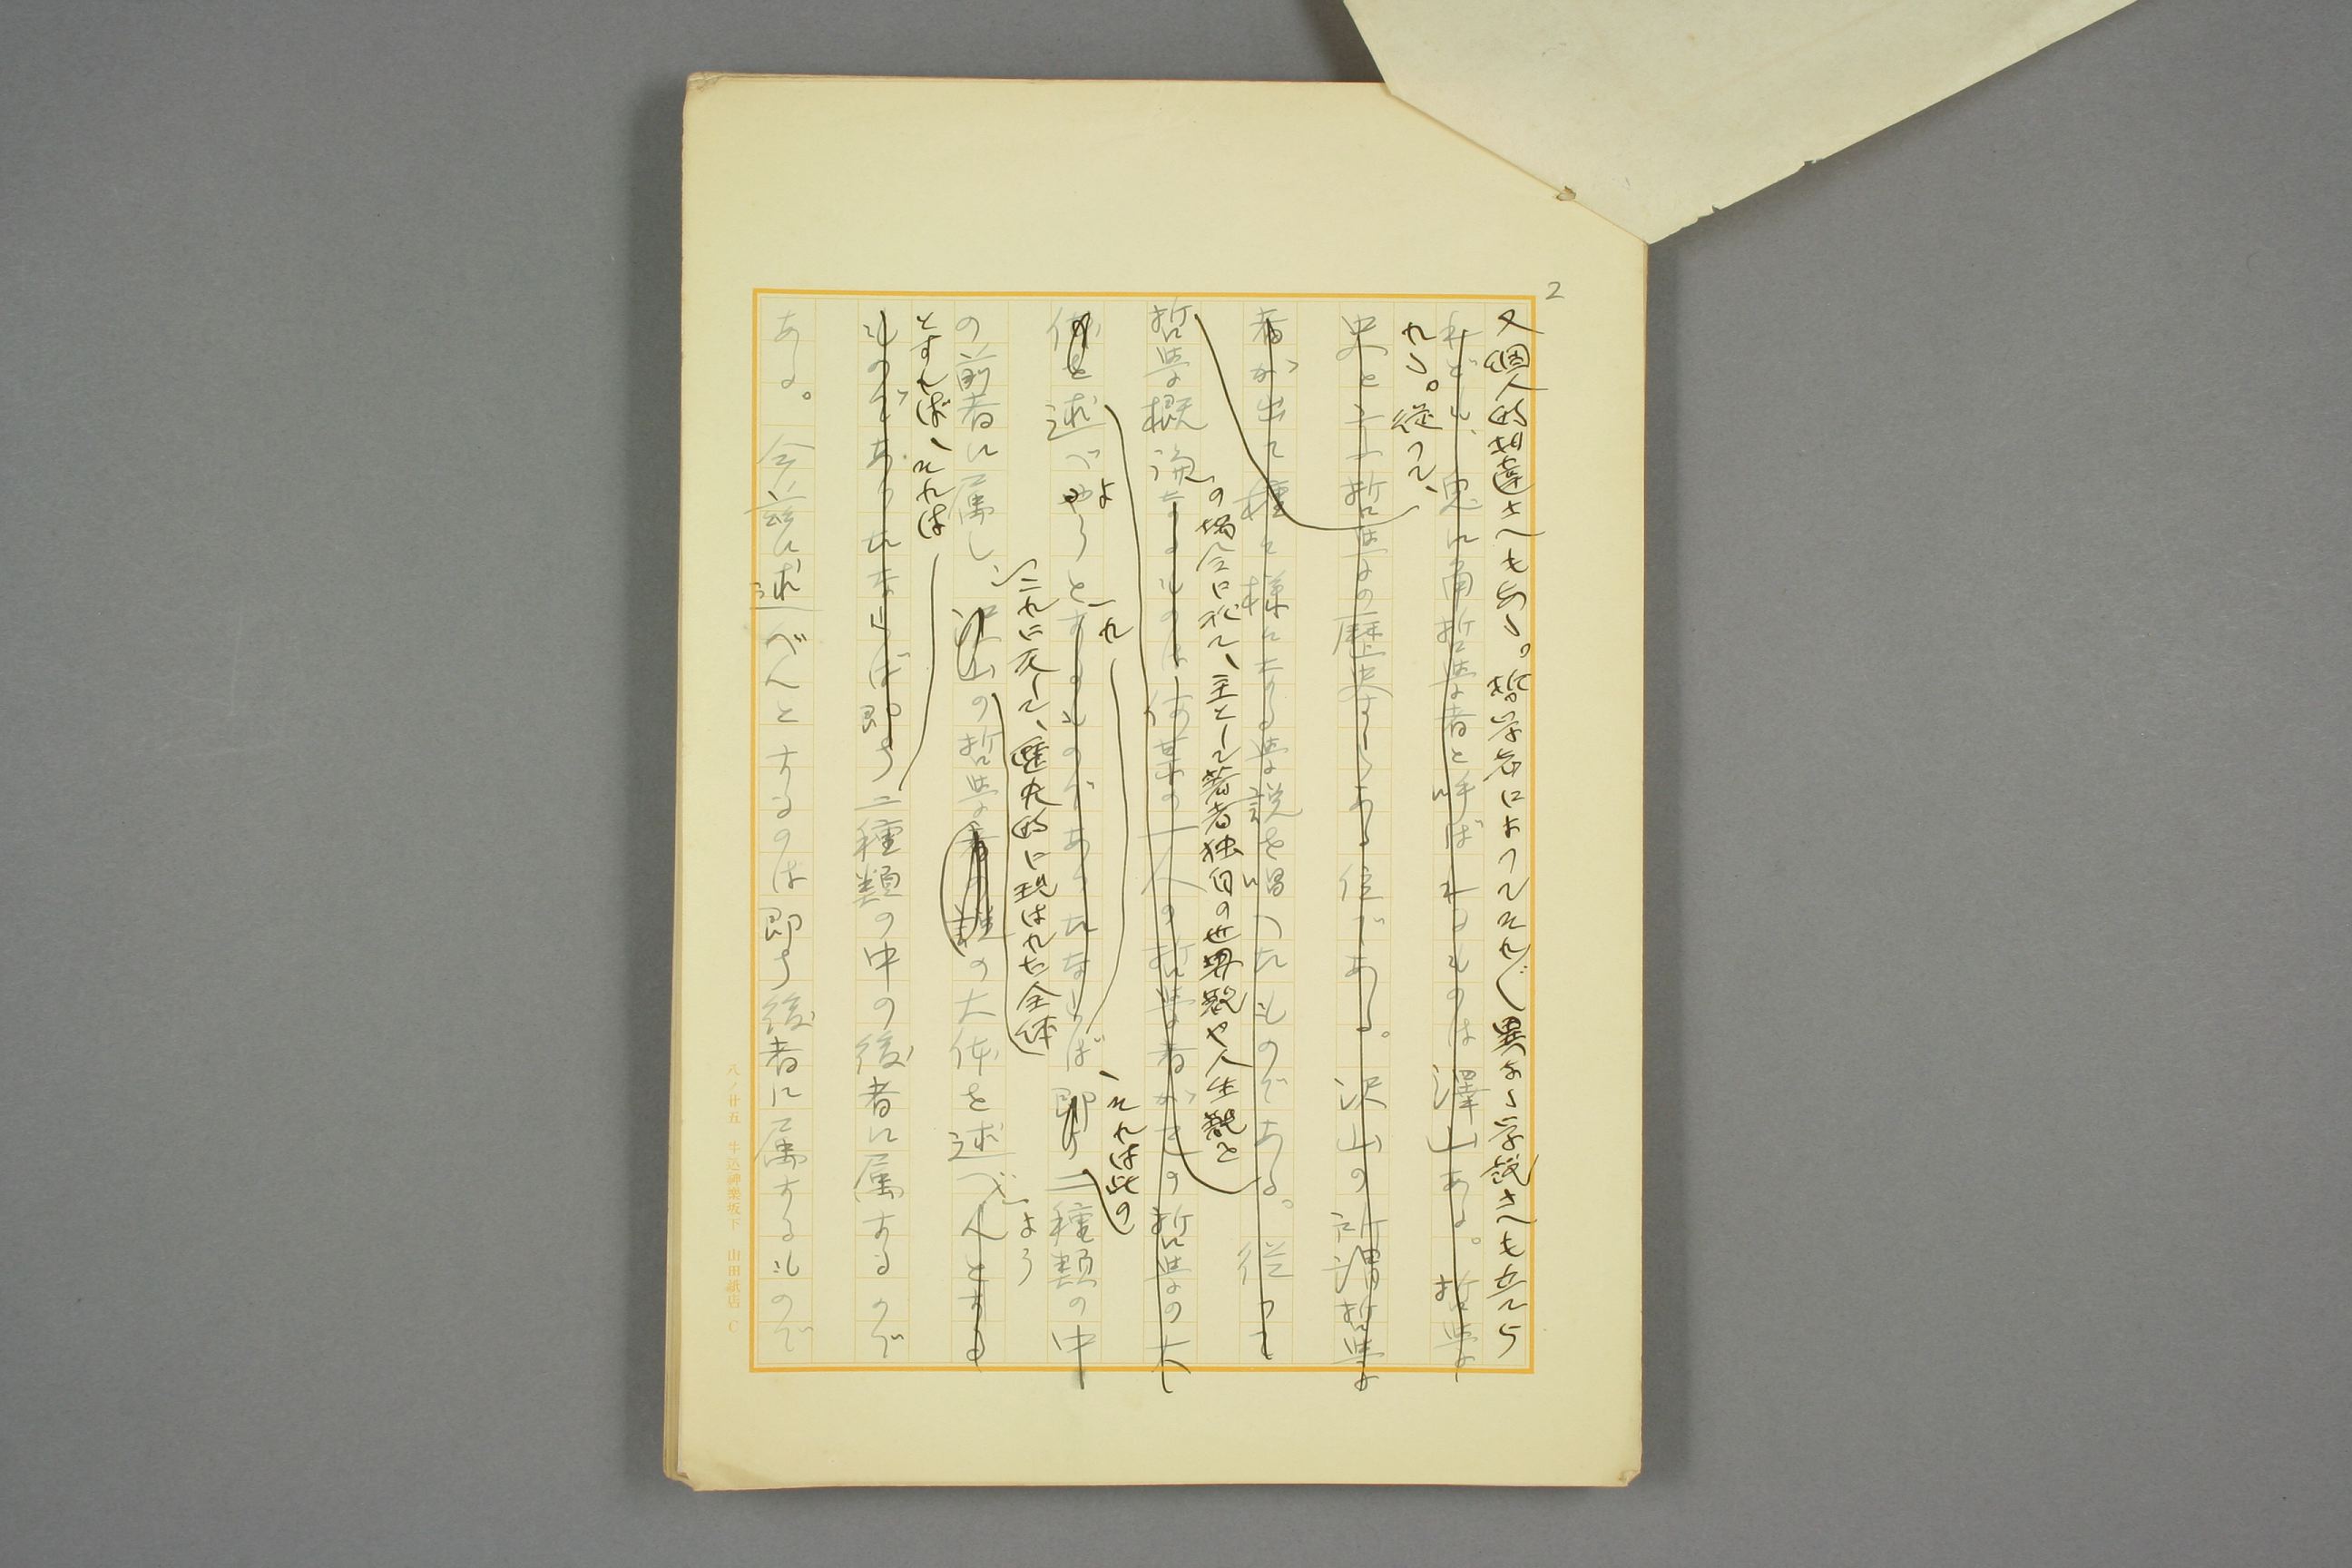 2
又個人的相違さへもある。哲学者によつてそれ〴〵異なる学説さへも立てら
れども、兎に角哲学者と呼ばれるものは澤山ある。哲学
れる。従つて、
史と云ふ哲学の歴史さへある位である。沢山の所謂哲学
者が出て種々様々なる学説を唱へたものである。従つて
の場合に於て、主として著者独自の世界観や人生観と
哲学概論なるものは何某の一人の哲学者がその哲学の大
、それは此の
体を述べやうとするものであつたならば即ち二種類の中
よ
れ
これに反して、歴史的に現はれた全体
の前者に属し、沢山の哲学者の説の大体を述べんとする
よう
とすれば、それは
ものであつたならば即ち二種類の中の後者に属するので
ある。今、茲に述べんとするのは即ち後者に属するもので
八ノ廿五 牛込神楽坂下 山田紙店 C